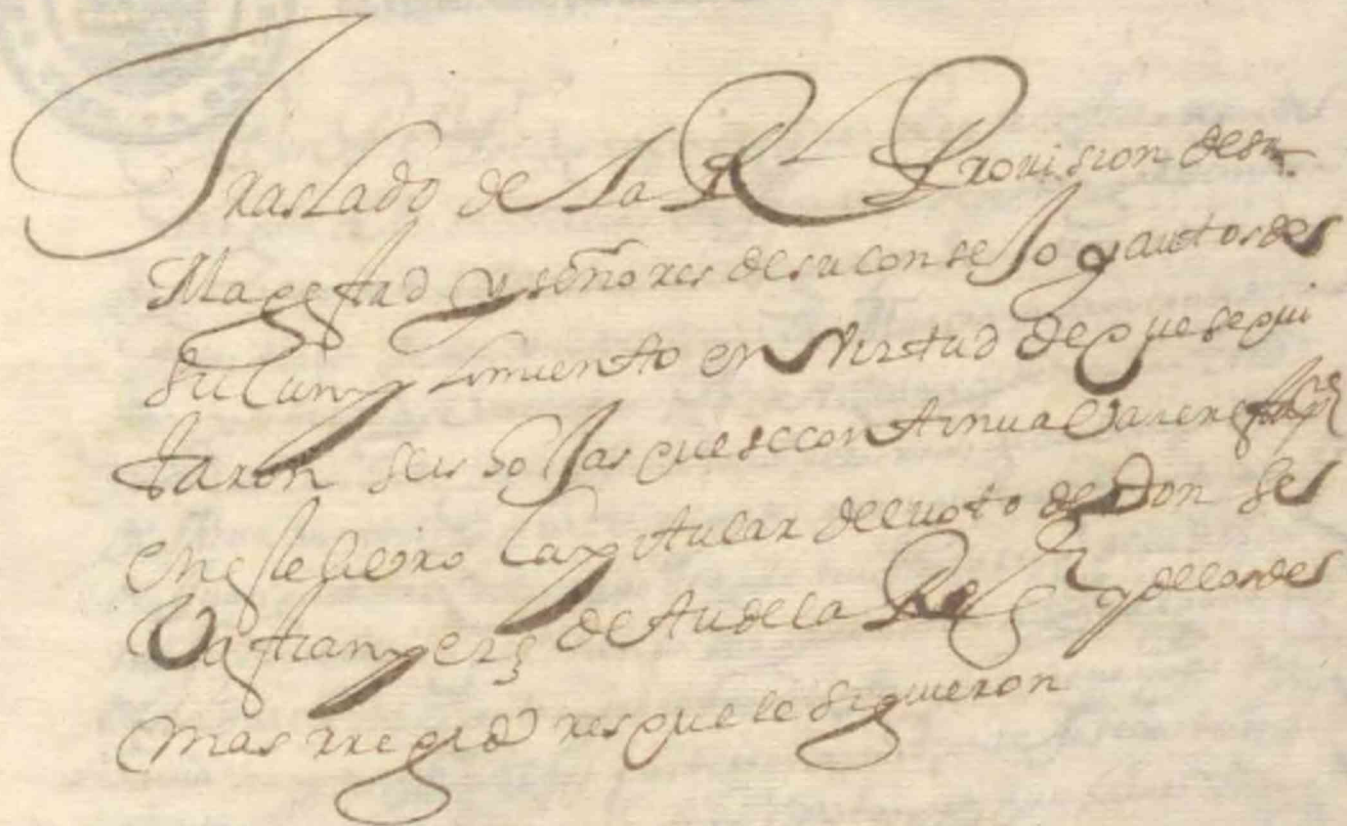 Traslado de la Rl Provision de su
Magestad y señores de su consejo y autos de
su Cumplimiento en Virtud de que se qui
taron seis hojas que se continuaban en esta pte
en este libro Capitular del voto de Don Se
Vastian perz de tudela Rexor y de los de
mas rregidores que le siguieron